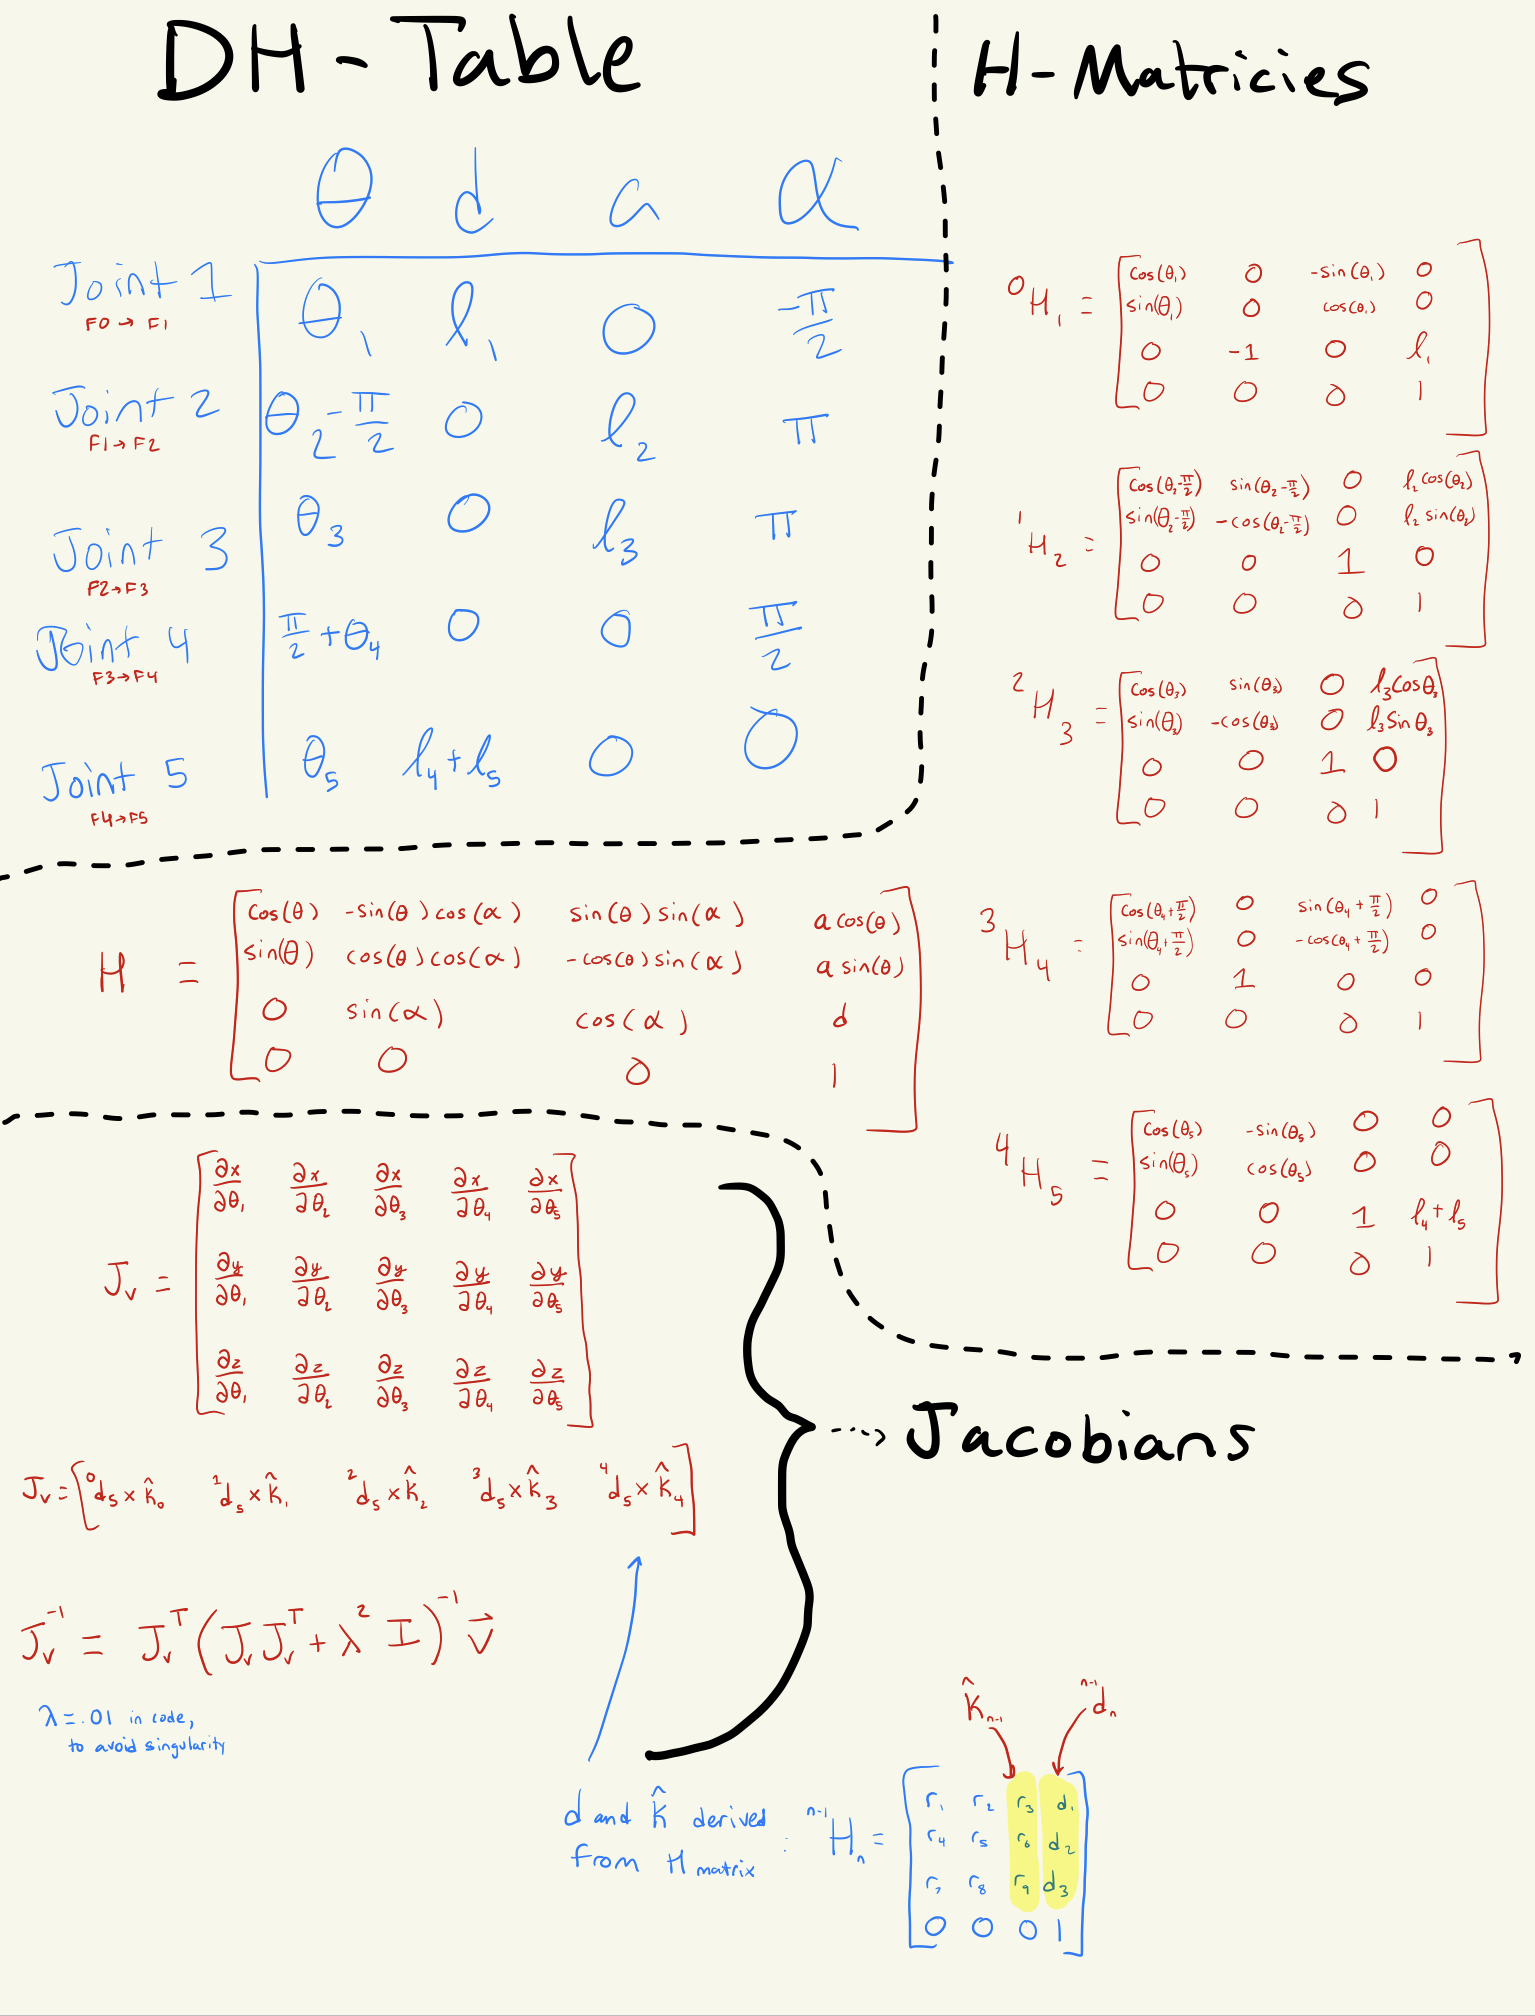 DH-Table
θ d a α
Joint 1 θ₁ l₁ 0 -π/2
F0 → F1
Joint 2 θ₂-π/2 0 l₂ π
F1 → F2
Joint 3 θ₃ 0 l₃ π
F2 → F3
Joint 4 π/2+θ₄ 0 0 π/2
F3 → F4
Joint 5 θ₅ l₄+l₅ 0 0
F4 → F5
H-Matricies
⁰H₁ =
cos(θ₁) 0 -sin(θ₁) 0
sin(θ₁) 0 cos(θ₁) 0
0 -1 0 l₁
0 0 0 1
¹H₂ =
cos(θ₂-π/2) sin(θ₂-π/2) 0 l₂cos(θ₂)
sin(θ₂-π/2) -cos(θ₂-π/2) 0 l₂sin(θ₂)
0 0 1 0
0 0 0 1
²H₃ =
cos(θ₃) sin(θ₃) 0 l₃cosθ₃
sin(θ₃) -cos(θ₃) 0 l₃sinθ₃
0 0 1 0
0 0 0 1
³H₄ =
cos(θ₄+π/2) 0 sin(θ₄+π/2) 0
sin(θ₄+π/2) 0 -cos(θ₄+π/2) 0
0 1 0 0
0 0 0 1
⁴H₅ =
cos(θ₅) -sin(θ₅) 0 0
sin(θ₅) cos(θ₅) 0 0
0 0 1 l₄+l₅
0 0 0 1
H =
cos(θ) -sin(θ)cos(α) sin(θ)sin(α) a cos(θ)
sin(θ) cos(θ)cos(α) -cos(θ)sin(α) a sin(θ)
0 sin(α) cos(α) d
0 0 0 1
Jv =
∂x/∂θ₁ ∂x/∂θ₂ ∂x/∂θ₃ ∂x/∂θ₄ ∂x/∂θ₅
∂y/∂θ₁ ∂y/∂θ₂ ∂y/∂θ₃ ∂y/∂θ₄ ∂y/∂θ₅
∂z/∂θ₁ ∂z/∂θ₂ ∂z/∂θ₃ ∂z/∂θ₄ ∂z/∂θ₅
Jacobians
Jv = [⁰d₅ × k̂₀ ¹d₅ × k̂₁ ²d₅ × k̂₂ ³d₅ × k̂₃ ⁴d₅ × k̂₄]
Jv⁻¹ = Jvᵀ(JvJvᵀ + λ² I)⁻¹ v⃗
λ = .01 in code,
to avoid singularity
k̂ₙ₋₁ ⁿ⁻¹dₙ
d and k̂ derived
from H matrix : ⁿ⁻¹Hₙ =
r₁ r₂ r₃ d₁
r₄ r₅ r₆ d₂
r₇ r₈ r₉ d₃
0 0 0 1